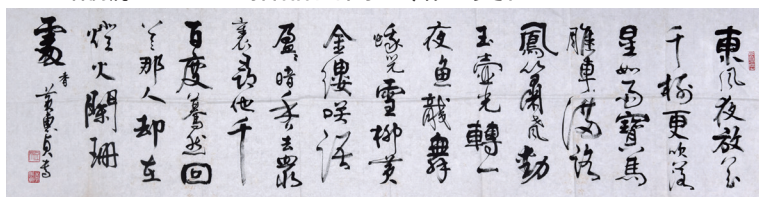 東風夜放花
千樹更吹落
星如雨寶馬
雕車滿路
鳳簫聲動
玉壺光轉一
夜魚龍舞
蛾兒雪柳黄
金縷笑語
盈盈暗香去眾
裏尋他千
百度驀然回
首那人却在
燈火闌珊
處
香 黄惠貞書